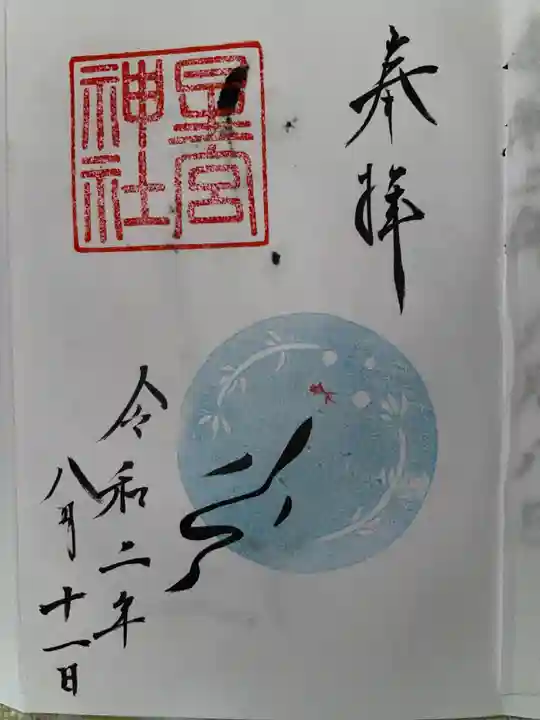 奉拝
星宮
神社
令和二年
八月十一日